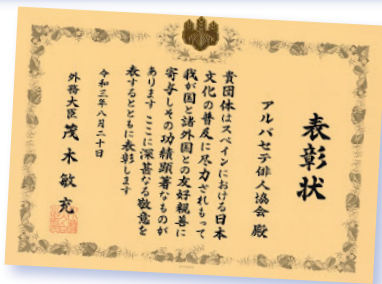 表彰状
アルバセテ俳人協会 殿
貴団体はスペインにおける日本
文化の普及に尽力されもって
我が国と諸外国との友好親善に
寄与しその功績顕著なものが
あります ここに深甚なる敬意を
表するとともに表彰します
令和三年八月二十日
外務大臣 茂木敏充